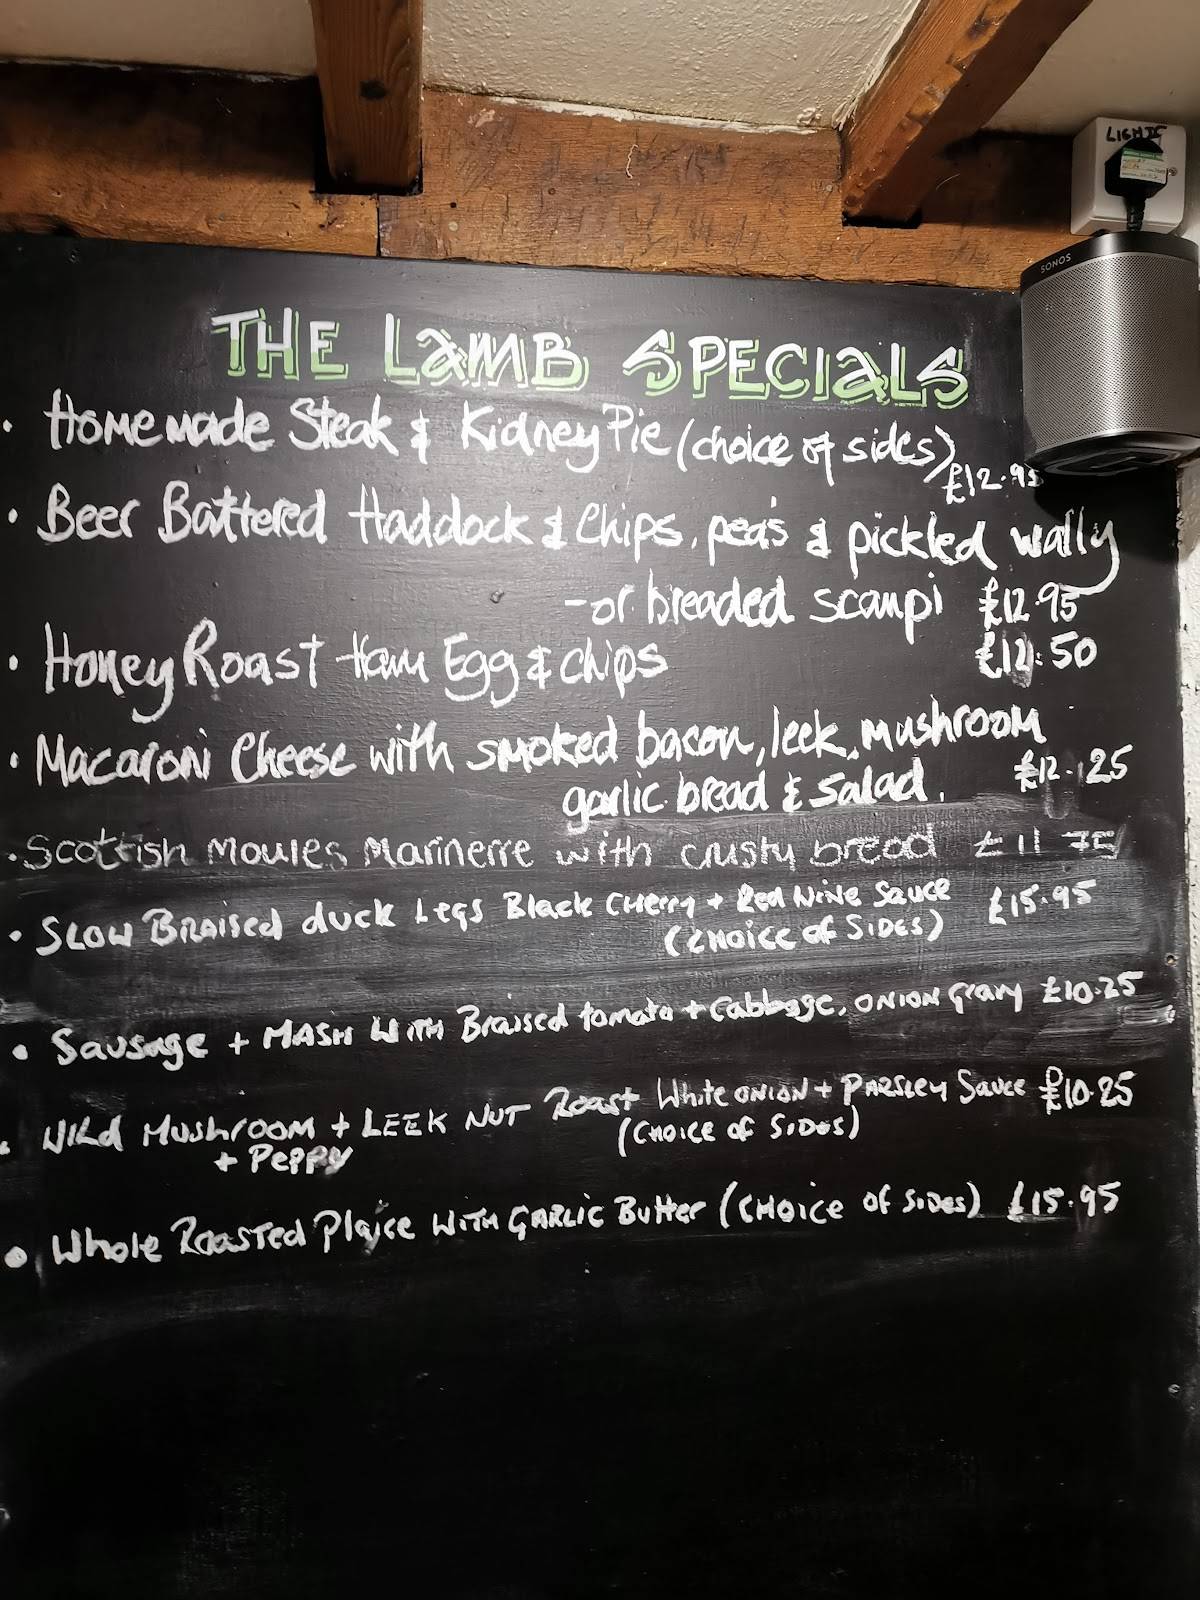 LIGHTS
SONOS
THE LAMB SPECIALS
• Homemade Steak & Kidney Pie (choice of sides)
£12.95
• Beer Battered Haddock & Chips, peas & pickled wally
- or breaded scampi £12.95
• Honey Roast Ham Egg & chips £12.50
• Macaroni Cheese with smoked bacon, leek, mushroom
garlic bread & salad. £12.25
• Scottish Moules Marinerre with crusty bread £11 75
• SLOW BRaised duck Legs Black CHerry + Red Wine Sauce £15.95
(CHOICE of SIDES)
• Sausage + MASH WITH Braised tomato + Cabbage, ONION Gravy £10.25
• Wild MusHroom + LEEK NUT Roast White ONION + PARSLEY Sauce £10.25
+ Peppy (CHOICE of SIDES)
• Whole Roasted Plaice WITH GARLIC Butter (CHOICE of SIDES) £15.95